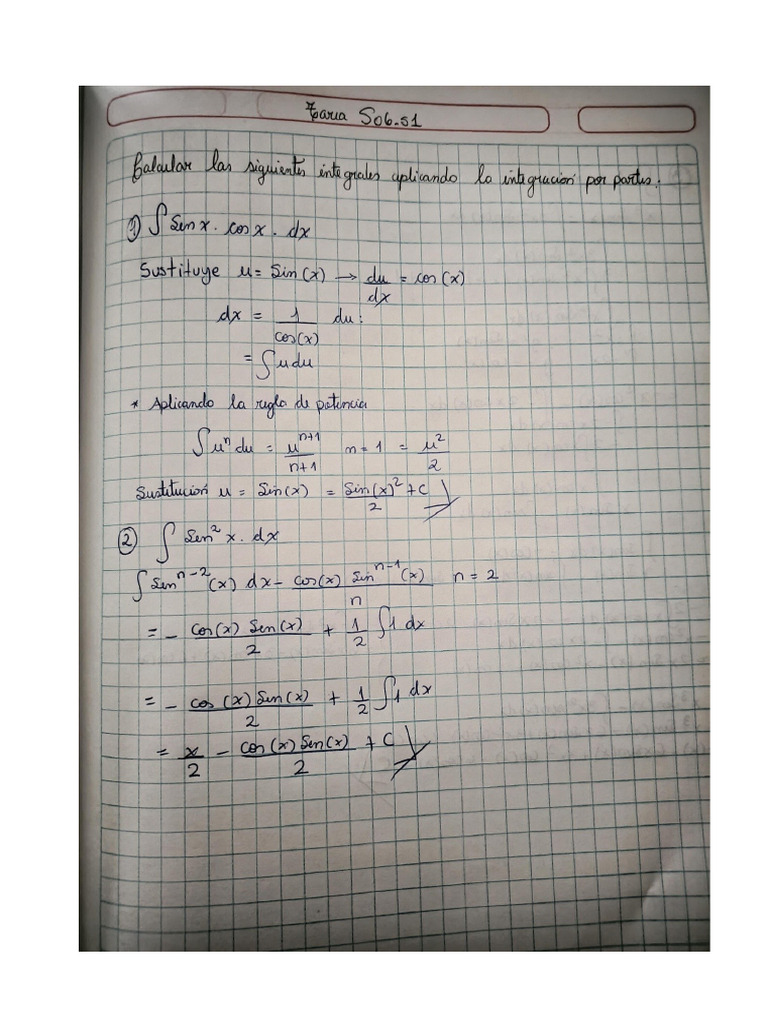 Tarea S06.s1
Calcular las siguientes integrales aplicando la integración por partes:
1) ∫ Sen x . cos x . dx
Sustituye u = Sin(x) → du/dx = cos(x)
dx = 1/cos(x) du:
= ∫ u du
* Aplicando la regla de potencia
∫ uⁿ du = uⁿ⁺¹/n+1 n = 1 = u²/2
Sustitución u = Sin(x) = Sin(x)²/2 + C
2 ∫ Sen² x . dx
∫ Senⁿ⁻²(x) dx - cos(x) Sinⁿ⁻¹(x)/n n = 2
= - cos(x) Sen(x)/2 + 1/2 ∫ 1 dx
= - cos(x) Sen(x)/2 + 1/2 ∫ 1 dx
= x/2 - cos(x) Sen(x)/2 + C